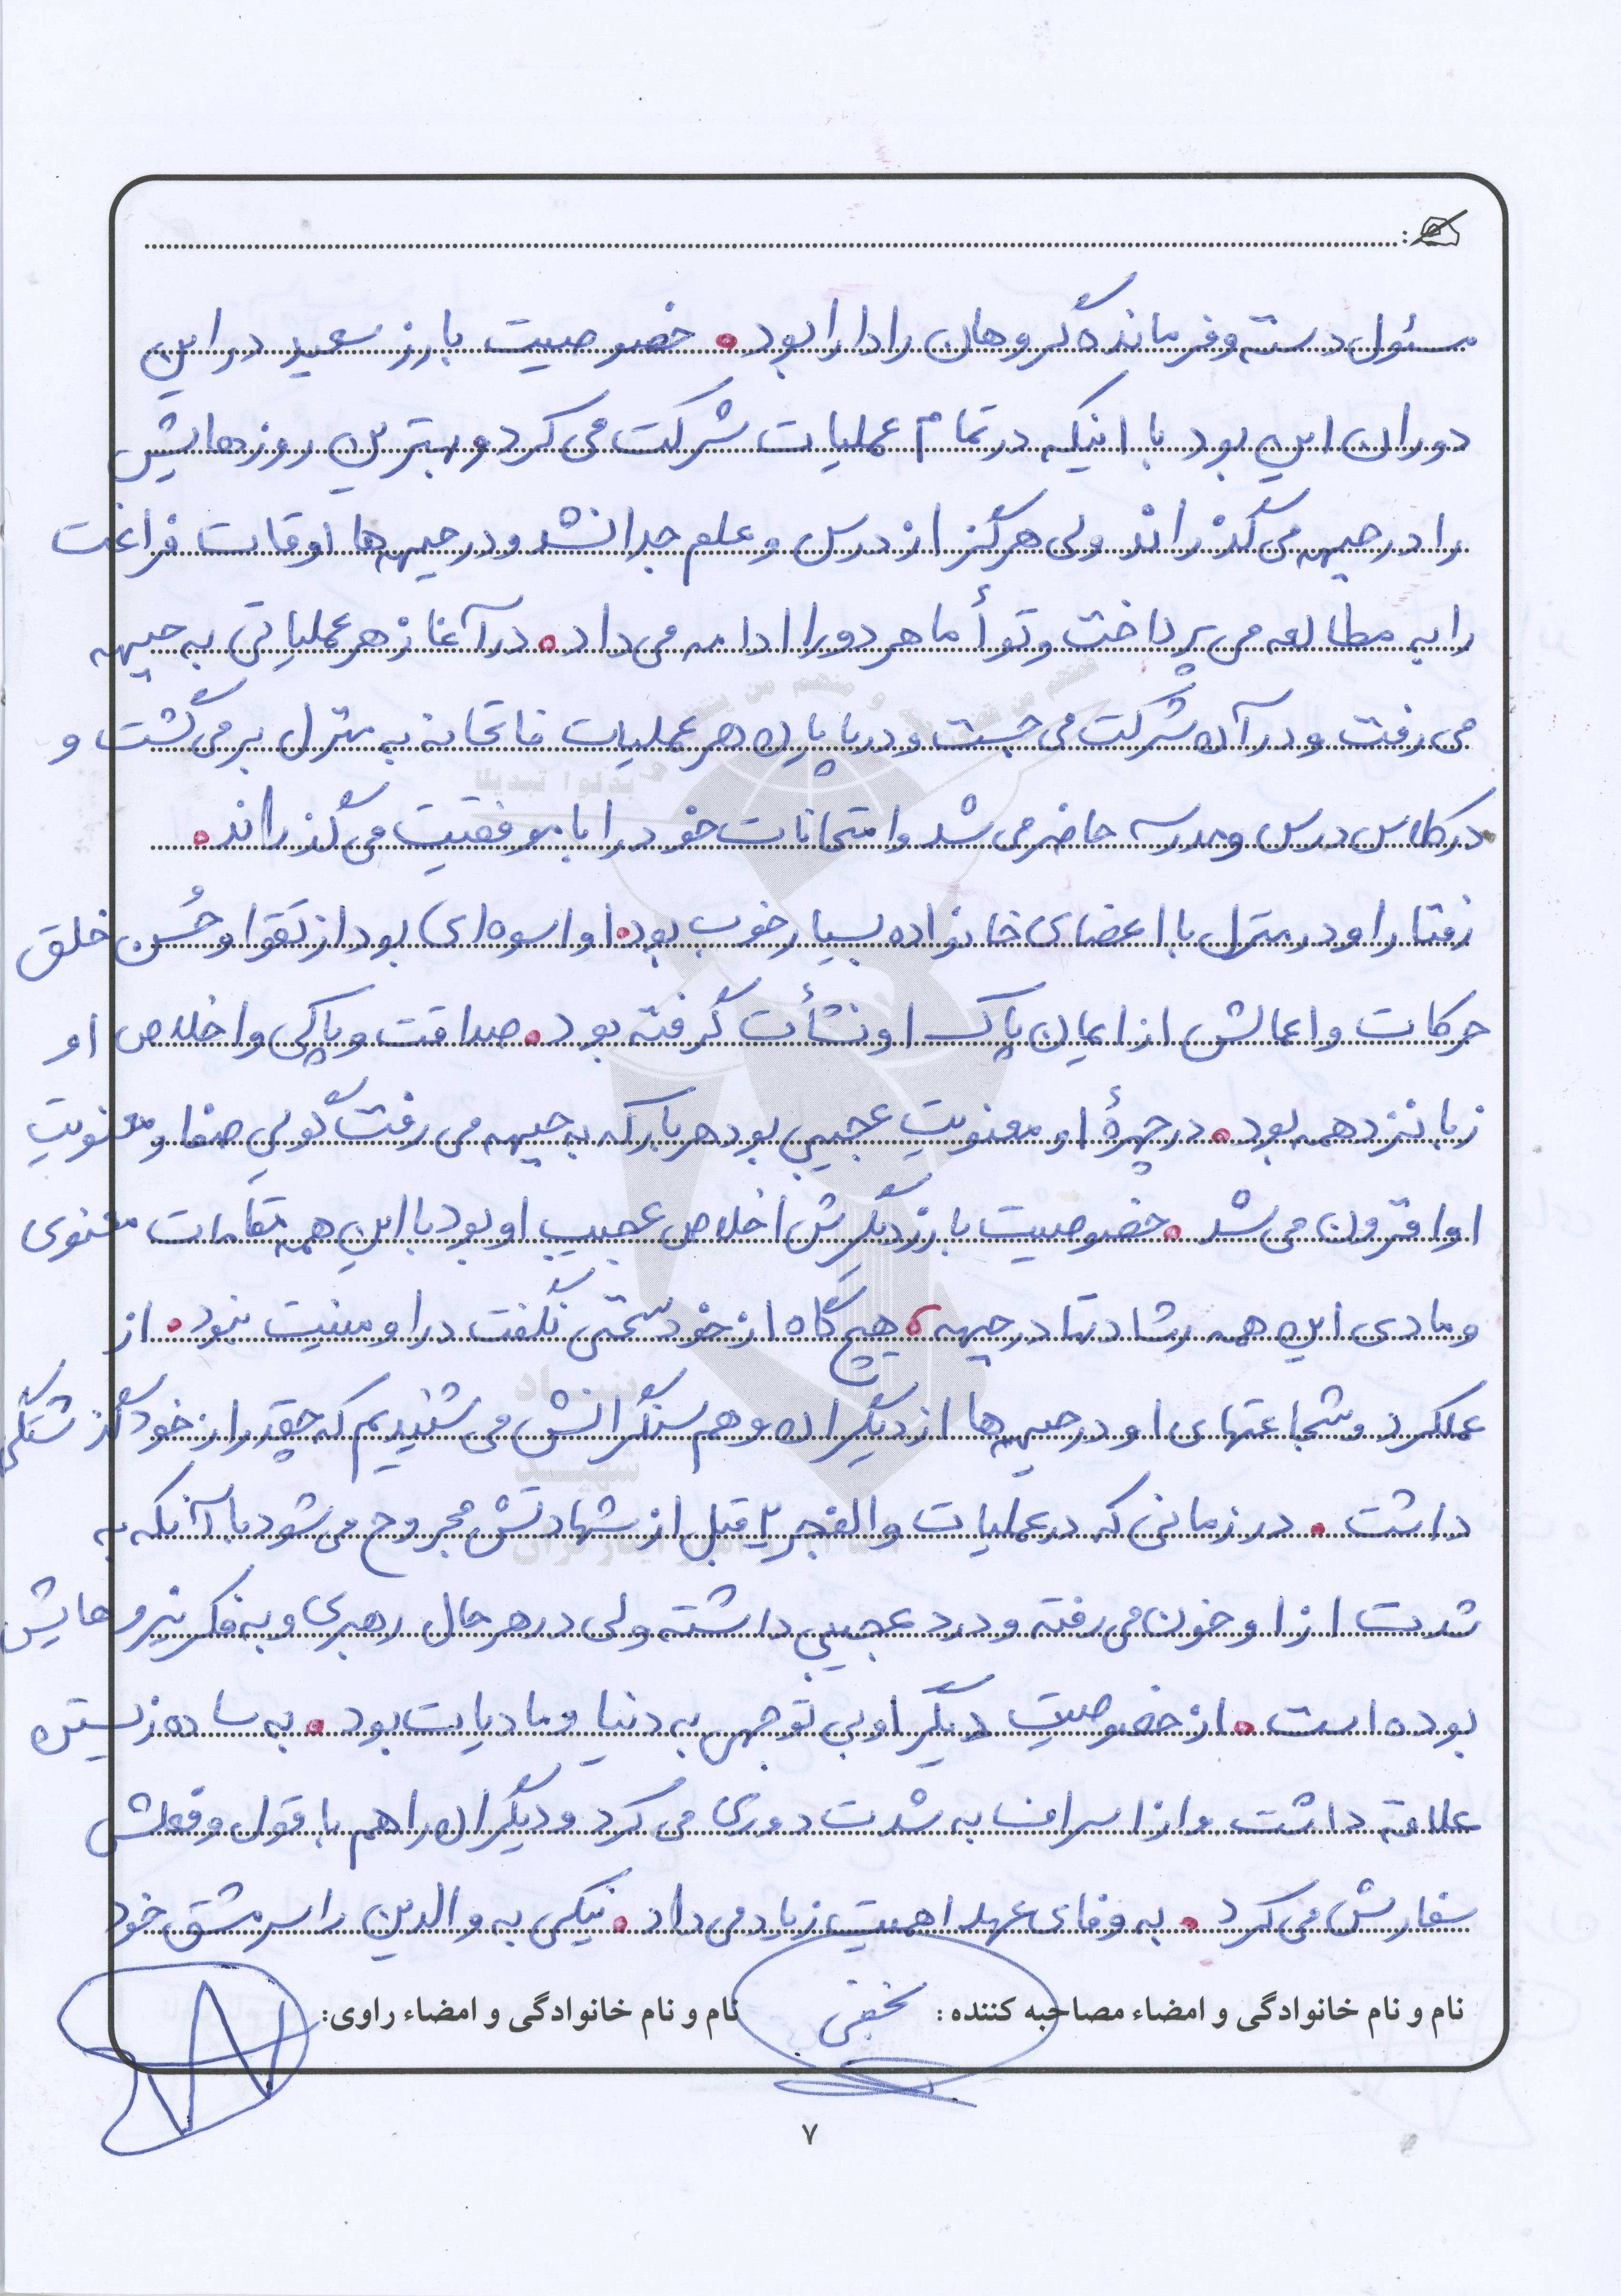 مسئول دسته و فرمانده گروهان را دارا بود. خصوصیت بارز سعید در این
دوران این بود با اینکه در تمام عملیات شرکت می کرد و بهترین روزهایش
را در جبهه می گذراند ولی هرگز از درس و علم جدا نشد و در جبهه ها اوقات فراغت
را به مطالعه می پرداخت و توأما هر دو را ادامه می داد. در آغاز هر عملیاتی به جبهه
می رفت و در آن شرکت می جست و در پایان هر عملیات فاتحانه به منزل برمی گشت و
در کلاس درس و مدرسه حاضر می شد و امتحانات خود را با موفقیت می گذراند.
رفتار او در منزل با اعضای خانواده بسیار خوب بود. او اسوه ای بود از تقوا و حُسن خلق
حرکات و اعمالش از ایمان پاک او نشأت گرفته بود. صداقت و پاکی و اخلاص او
زبانزد همه بود. در چهرهٔ او معنویت عجیبی بود هر بار که به جبهه می رفت گویی صفا و معنویت
او افزون می شد. خصوصیت بارز دیگرش اخلاص عجیب او بود با این همه مقامات معنوی
و مادی این همه رشادتها در جبهه، هیچ گاه از خود سخنی نگفت در او منیت نبود. از
عملکرد و شجاعتهای او در جبهه ها از دیگران و هم سنگرانش می شنیدیم که چقدر از خود گذشتگی
داشت. در زمانی که در عملیات والفجر ۲ قبل از شهادتش مجروح می شود با آنکه به
شدت از او خون می رفته و درد عجیبی داشته ولی در هر حال رهبری و به فکر نیروهایش
بوده است. از خصوصیت دیگر او بی توجهی به دنیا و مادیات بود. به ساده زیستن
علاقه داشت و از اسراف به شدت دوری می کرد و دیگران را هم با قول و فعلش
سفارش می کرد. به وفای عهد اهمیت زیاد می داد. نیکی به والدین را سرمشق خود
نام و نام خانوادگی و امضاء مصاحبه کننده: نام و نام خانوادگی و امضاء راوی:
۷